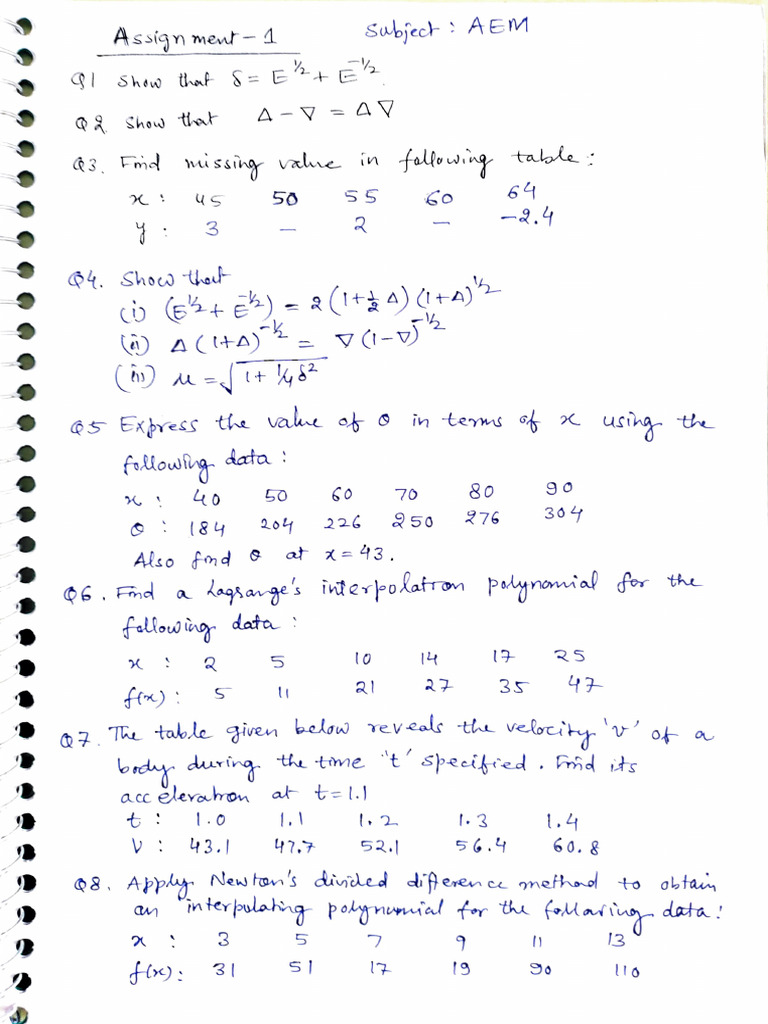 Assignment-1 Subject: AEM
Q1 Show that δ = E^1/2 + E^-1/2.
Q2. Show that Δ - ∇ = Δ∇
Q3. Find missing value in following table:
x: 45 50 55 60 64
y: 3 – 2 – -2.4
Q4. Show that
(i) (E^1/2 + E^-1/2) = 2(1+½Δ)(1+Δ)^1/2
(ii) Δ(1+Δ)^-1/2 = ∇(1-∇)^-1/2
(iii) μ = √(1+¼δ²)
Q5 Express the value of θ in terms of x using the
following data:
x: 40 50 60 70 80 90
θ: 184 204 226 250 276 304
Also find θ at x=43.
Q6. Find a Lagrange's interpolation polynomial for the
following data:
x: 2 5 10 14 17 25
f(x): 5 11 21 27 35 47
Q7. The table given below reveals the velocity 'v' of a
body during the time 't' specified. Find its
acceleration at t=1.1
t: 1.0 1.1 1.2 1.3 1.4
V: 43.1 47.7 52.1 56.4 60.8
Q8. Apply Newton's divided difference method to obtain
an interpolating polynomial for the following data:
x: 3 5 7 9 11 13
f(x): 31 51 17 19 90 110